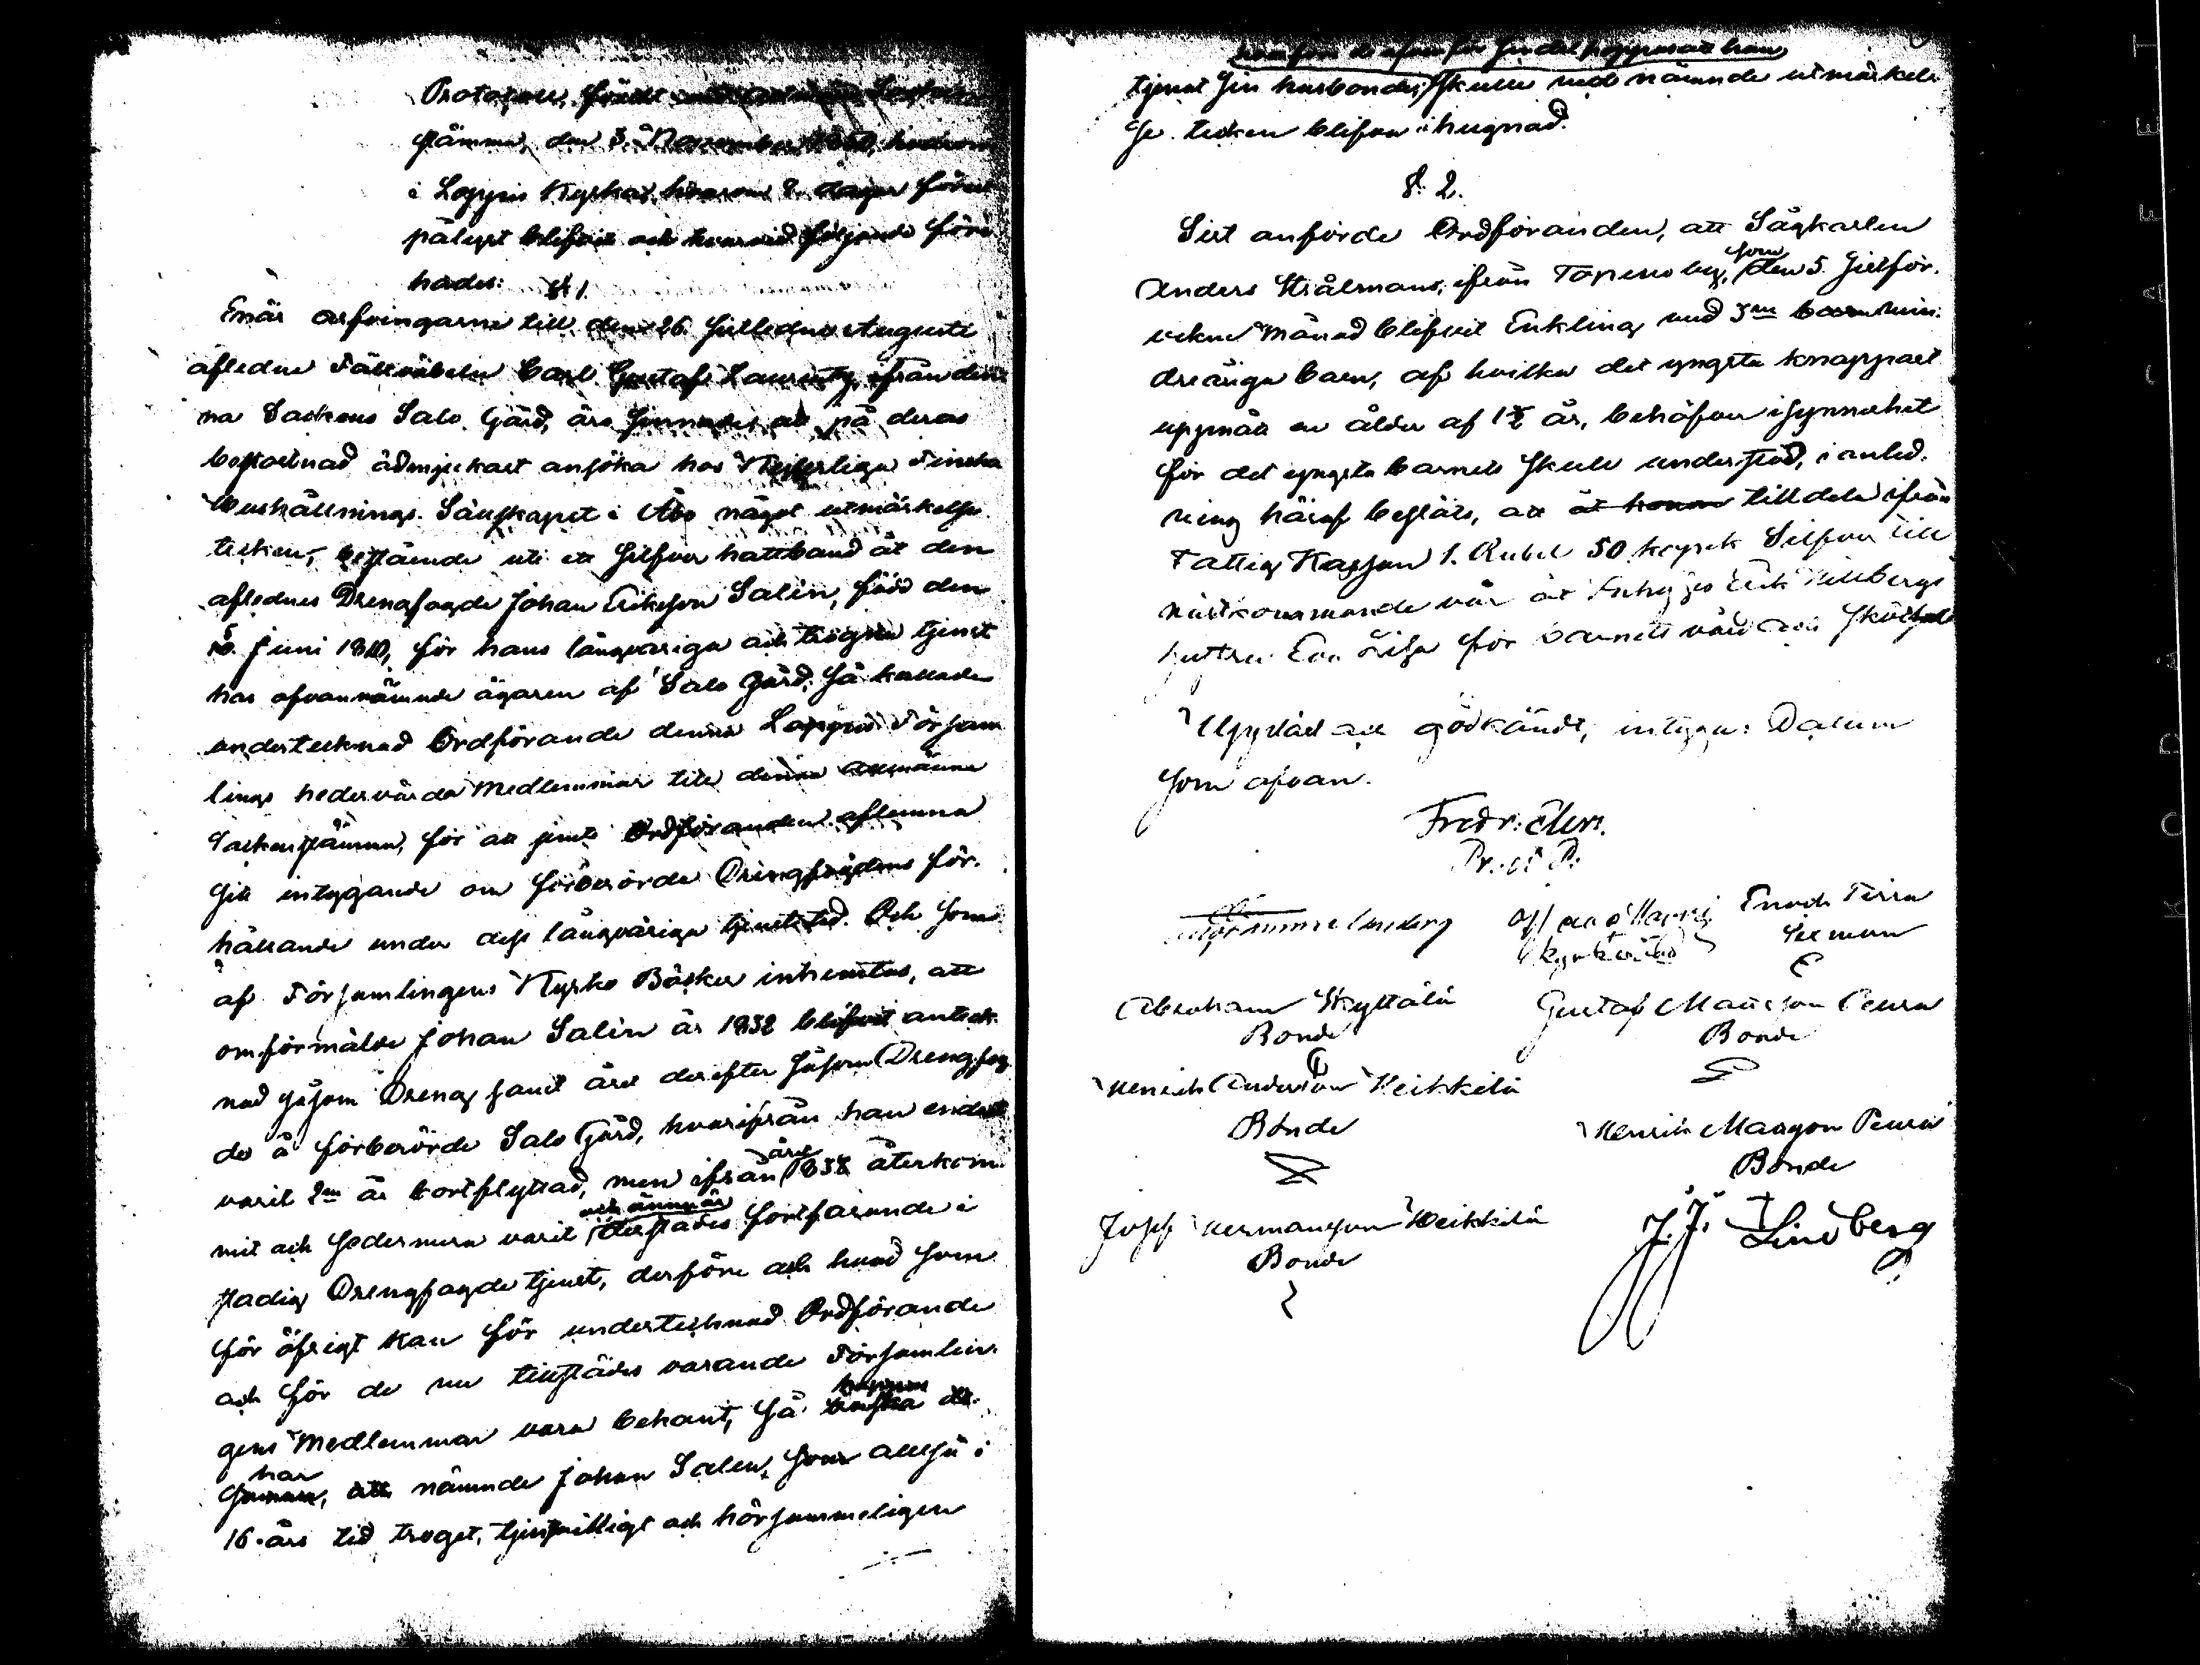 Protocoll, fördt Socken
stämma, den 3. November 1850, hvarom
i Loppis Kyrka, hvarom 8. dagar förut
pålyst blifvit och hvarvid följande före
hades: § 1.
Enär arfvingarne till den 26 sistledne Augusti
afledne Fältväbeln Carl Gustaf Laurentz, ifrån den
na Sockens Salo Gård, äro sinnade, att på deras
bekostnad ödmjukast ansöka hos Kejserliga Finska
Hushållnings Sällskapet i Åbo något utmärkelse
tecken, bestående uti ett silfver hattband åt den
aflednes Drengfogde Johan Eriksson Salin, född den
5. Juni 1810, för hans långvariga och trogna tjenst
hos ofvannämnde ägaren af Salo gård, så kallade
undertecknad Ordförande denna Loppis Försam
lings hedervärda Medlemmar till denna allmänna
Sockenstämma, för att jemte Ordföranden aflemna
sitt intygande om förberörde Drengfogdens för-
hållande under dess långvåriga tjenstetid. Och som
af Församlingens Kyrko Böcker inhemtas, att
omförmälde Johan Salin år 1832 blifvit anteck-
nad såsom Dreng samt året derefter såsom Drengfog
de å förberörde Salo Gård, hvarifrån han endast
varit 2ne år bortflyttad, men ifrån året 1838 återkom-
mit och sedermera varit och ännu är derstädes fortfarande i
stadig Drengfogde tjenst, derföre och hvad som
för öfrigt kan för undertecknad Ordförande
och för de nu tillstädes varande Församlin-
gens Medlemmar vara bekant, så
har
att nämnde Johan Salen, som alltså i
16. års tid troget, tjenstvilligt och hörsammeligen
tjenat sin husbonde, skulle med nämnde utmärkel-
se. tecken blifva i hugnad.
§. 2.
Sist anförde Ordföranden, att Sågkarlen
Anders Strålmans, ifrån Topeno by, som den 5. sistför-
vekne Månad blifvit Enkling med 3ne min-
dreåriga barn, af hvilka det yngsta knappast
uppnått en ålder af 1½ år, behöfver i synnerhet
för det yngsta barnets skull understöd, i anled-
ning häraf beslöts, att åt honom tilldela ifrån
Fattig Kassan 1. Rubel 50 kopek Silfver till
nästkommande vår åt Erik Hillbergs
hustru Eva Lisa för barnets vård och skötsel
Uppläst och godkändt, intyga: Datum
som ofvan.
Fredr: Elers.
Pr. et P.
Enoch Terra
Abraham Skyttälä
Bonde
Gustaf Matsson Peura
Bonde
Henrich Andersson Heikkilä
Bonde
Henrik Mangon Peura
Bonde
Josef Hermansson Heikkilä
Bonde
J. J. Lindberg